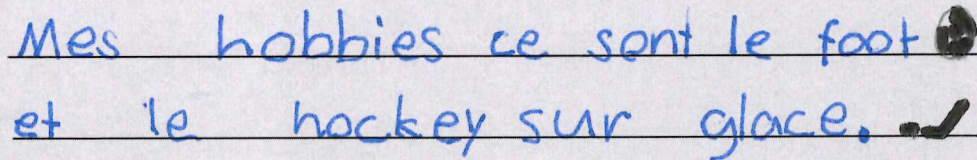 Mes hobbies ce sont le foot
et le hockey sur glace.